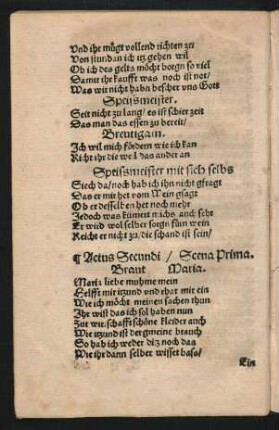 Vnd ihr mügt vollend richten zu
Von stundan ich itz gehen wil
Ob ich des gelts möcht borgn so viel
Damit ihr kaufft was noch ist not/
Was wir nicht habn bescher vns Gott
Speismeister.
Seit nicht zu lang/ es ist schier zeit
Das man das essen zu bereit/
Breutigam.
Ich wil mich fördern wie ich kan
Richt ihr die weil das ander an
Speissmeister mit sich selbs
Siech da/ noch hab ich ihn nicht gfragt
Das er mir het vom Wein gsagt
Ob er desselben het noch mehr
Jedoch was kümert michs auch sehr
Er wird wol selber sorgn fün wein
Reicht er nicht zu/ die schand ist sein/
¶ Actus Secundi / Scena Prima.
Braut Maria.
Maria liebe muhme mein
Helfft mir itzund vnd rhat mir ein
Wie ich möcht meinen sachen thun
Ihr wist das ich sol haben nun
Zur wirschafft schöne kleider auch
Wie itzund ist der gmeine brauch
So hab ich weder diz noch das
Wie ihr dann selber wisset bass/
Ein